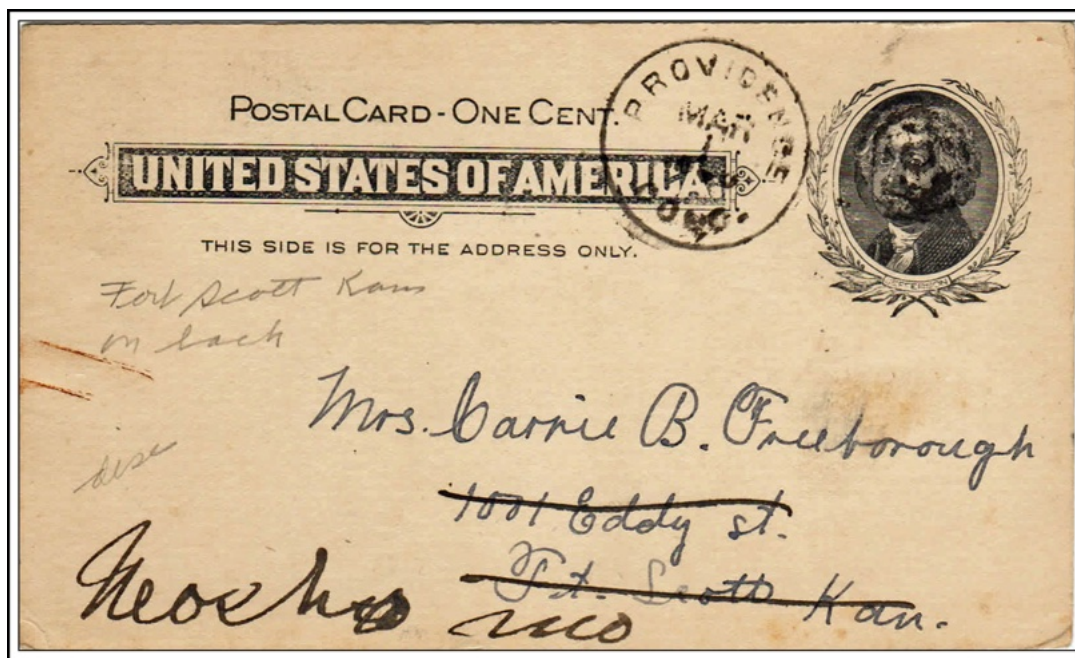 POSTAL CARD - ONE CENT.
UNITED STATES OF AMERICA.
THIS SIDE IS FOR THE ADDRESS ONLY.
PROVIDENCE
MAR
COLO.
JEFFERSON
Fort Scott Kans
on back
Mrs. Carrie B. Freeborough
1001 Eddy st.
Ft. Scott Kan.
Neosho Mo